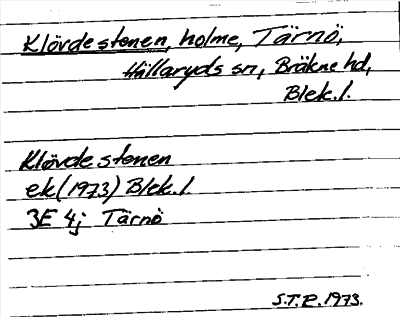 Klövdestenen, holme, Tärnö,
Hällaryds sn, Bräkne hd,
Blek.l.
Klövdestenen
ek (1973) Blek.l.
3E 4j Tärnö
S.T.R. 1973.